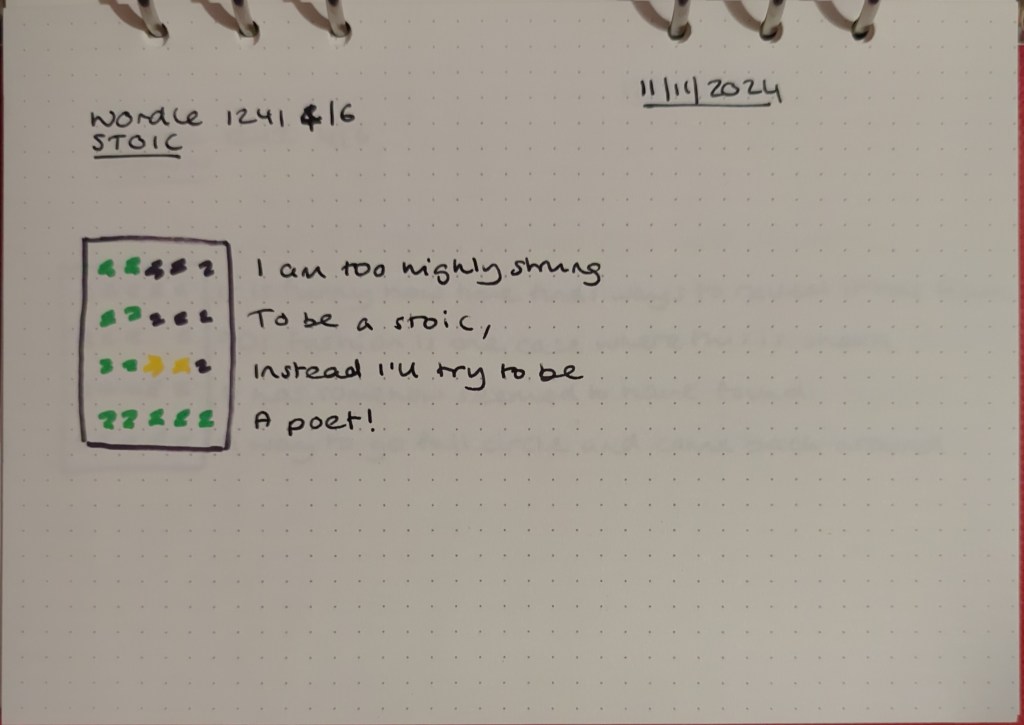 11/11/2024
Wordle 1241 4/6
STOIC
I am too highly strung
To be a stoic,
Instead I'll try to be
A poet!